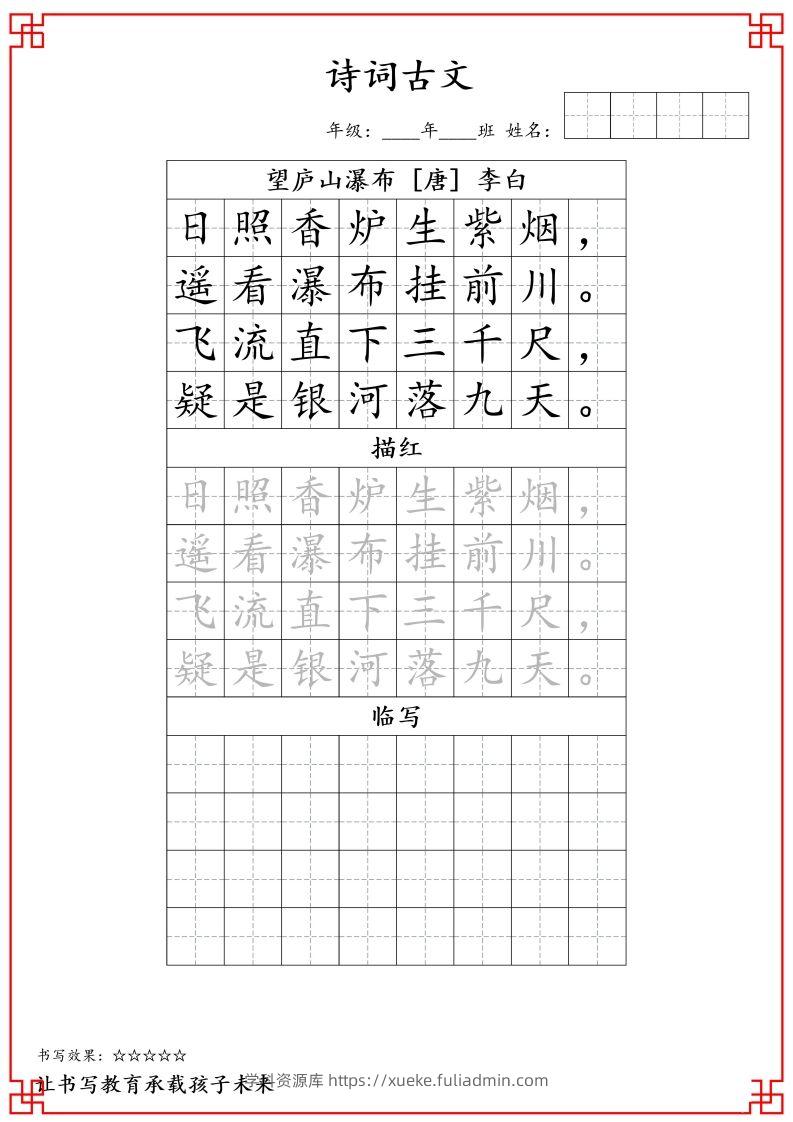 诗词古文
年级：____年____班 姓名：
望庐山瀑布［唐］李白
日照香炉生紫烟，
遥看瀑布挂前川。
飞流直下三千尺，
疑是银河落九天。
描红
日照香炉生紫烟，
遥看瀑布挂前川。
飞流直下三千尺，
疑是银河落九天。
临写
书写效果：☆☆☆☆☆
让书写教育承载孩子未来
学科资源库 https://xueke.fuliadmin.com